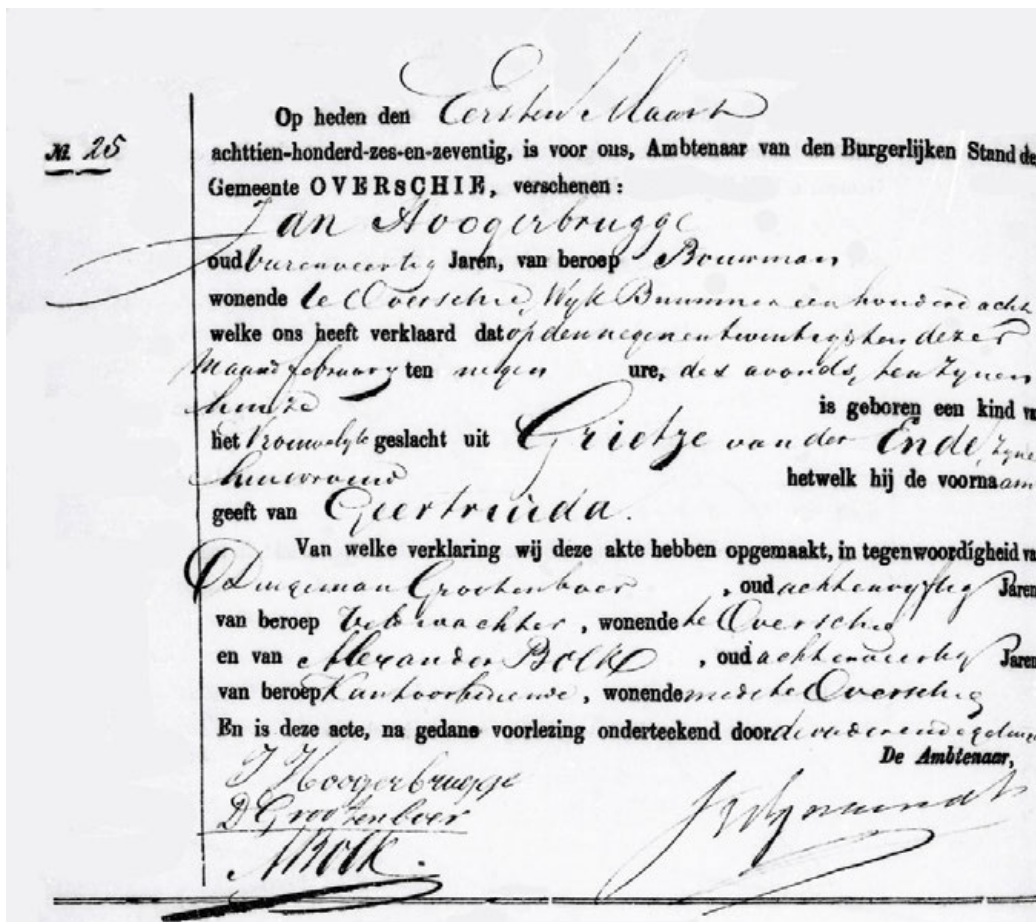 Op heden den Eersten Maart
№. 25
achttien-honderd-zes-en-zeventig, is voor ons, Ambtenaar van den Burgerlijken Stand de
Gemeente OVERSCHIE, verschenen:
Jan Hoogerbrugge
oud vierenveertig Jaren, van beroep Bouwman
wonende te Overschie, Wyk B nummer een honderd acht
welke ons heeft verklaard dat op den negenentwintigsten dezer
Maand february ten negen ure, des avonds, ten zynen
huize is geboren een kind va
het Vrouwelyk geslacht uit Grietje van der Ende, zyne
huisvrouw hetwelk hij de voornaam
geeft van Geertruida.
Van welke verklaring wij deze akte hebben opgemaakt, in tegenwoordigheid va
Dingeman Grootenboer, oud achtenvyftig Jaren
van beroep Veldwachter, wonende te Overschie
en van Alexander Bolk, oud achtenveertig Jaren
van beroep Kantoorbediende, wonende mede te Overschie
En is deze acte, na gedane voorlezing onderteekend door de vader en de
De Ambtenaar,
J Hoogerbrugge
D Grootenboer
A Bolk.